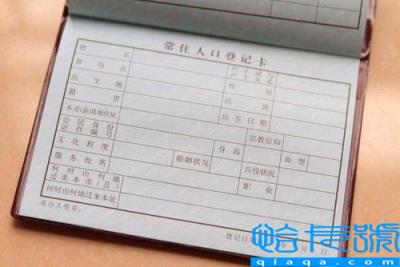 常住人口登记卡
姓名
户主或与户主关系
曾用名
性别
出生地
民族
籍贯
出生日期
本市(县)其他住址
宗教信仰
公民身份证件编号
身高
血型
文化程度
婚姻状况
兵役状况
服务处所
职业
何时由何地迁来本市(县)
何时由何地迁来本址
承办人签章:
登记日期:
年 月 日
qiaqa.com